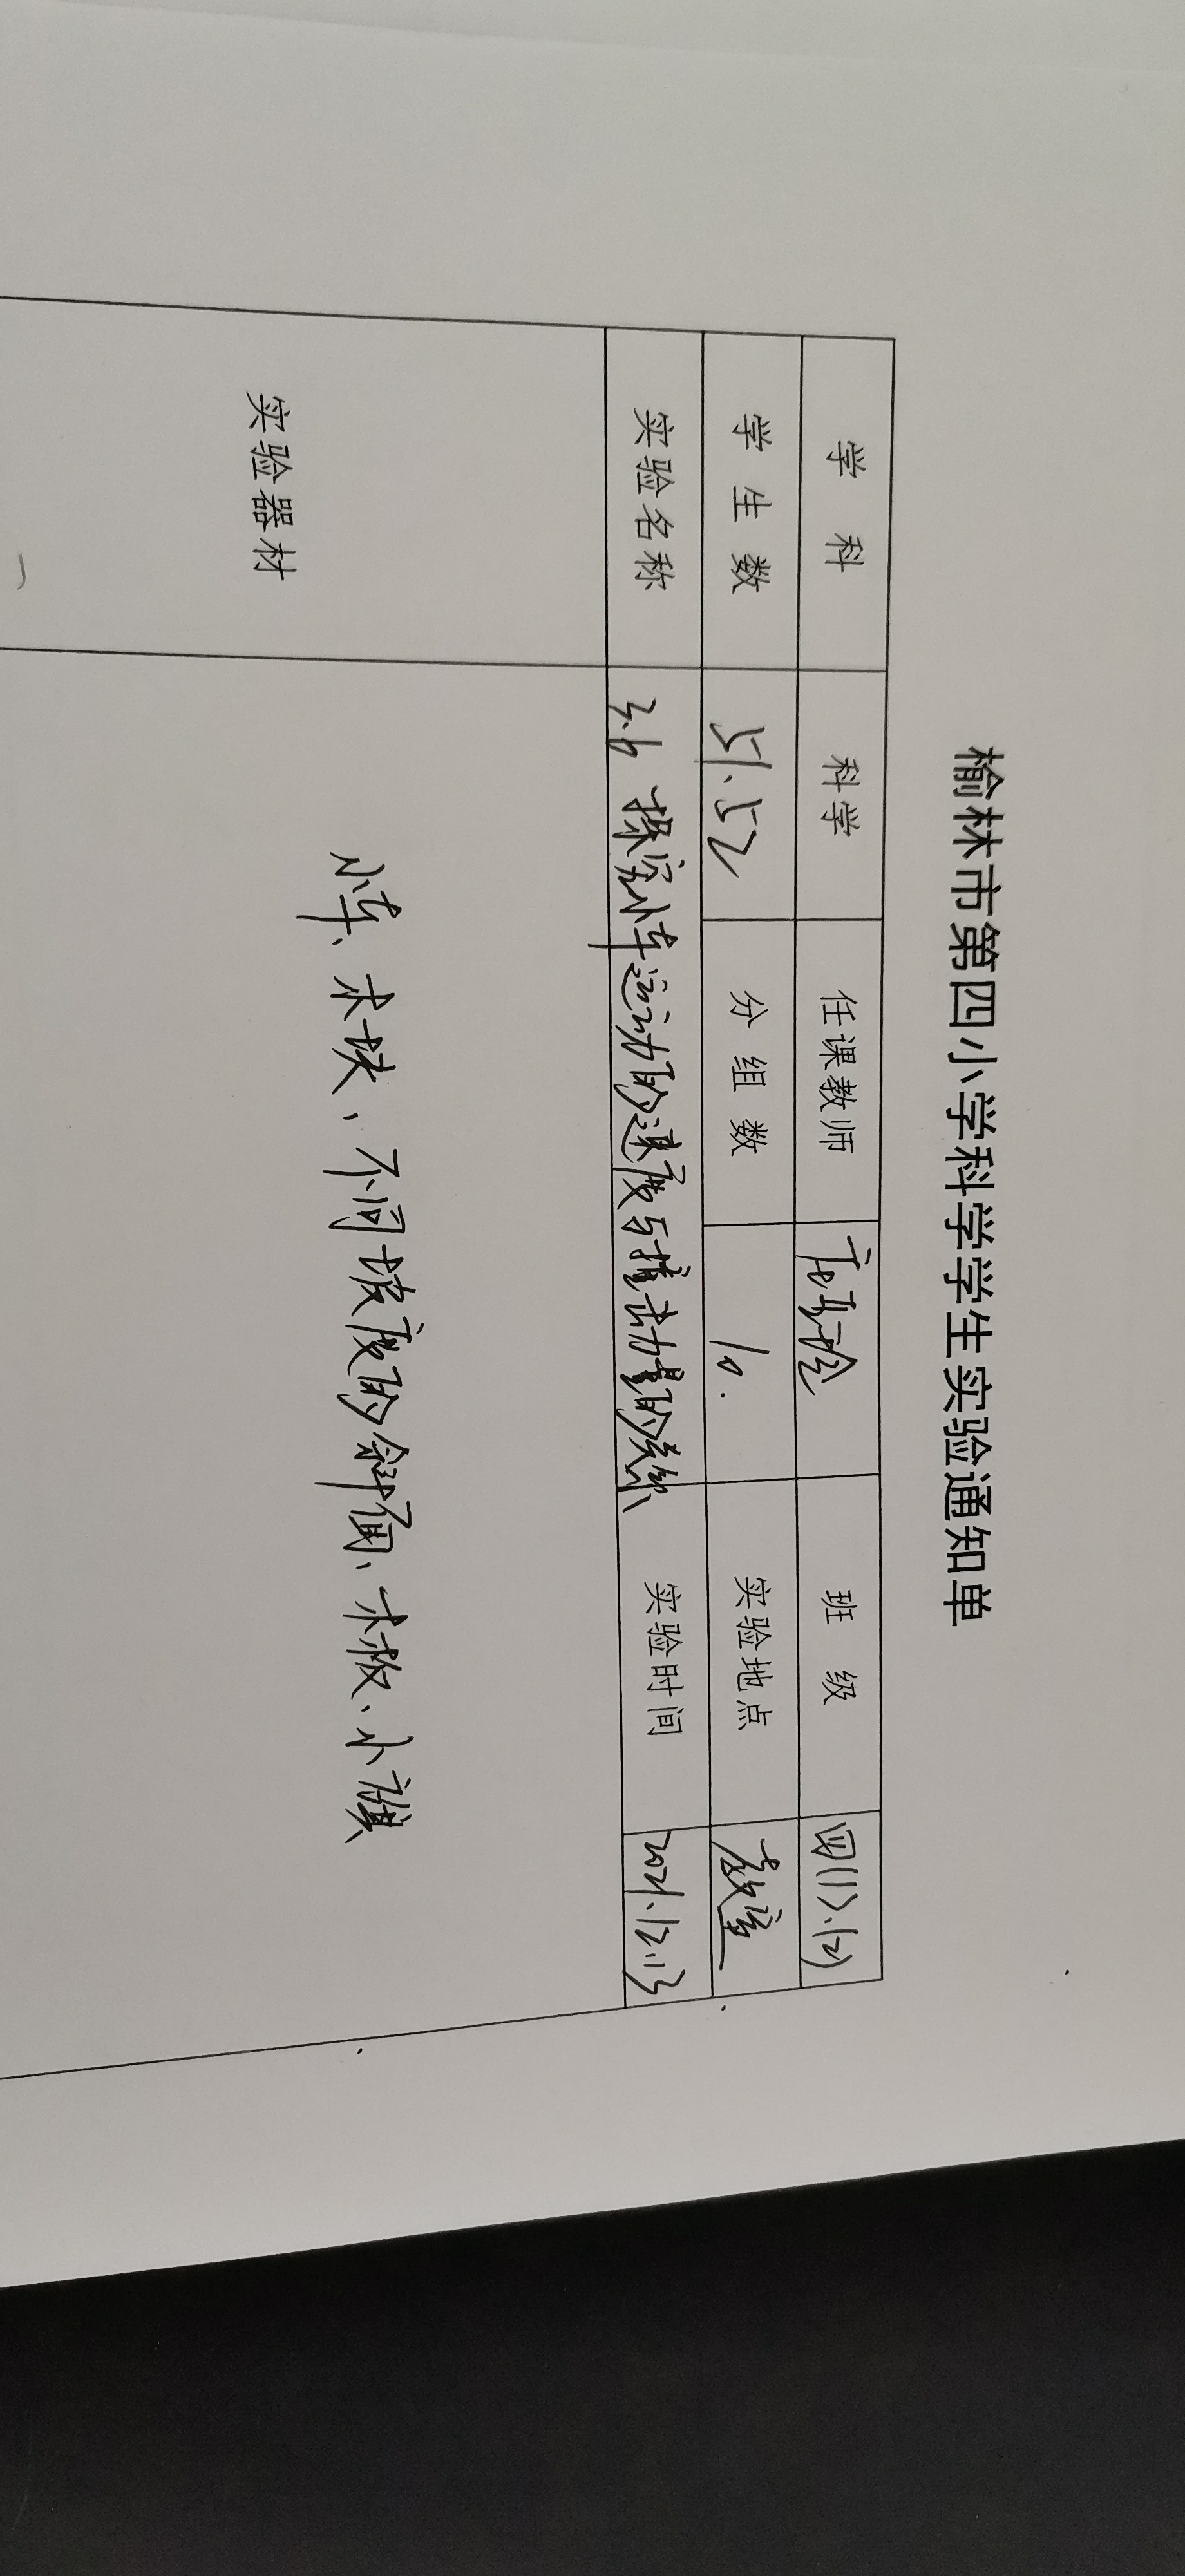 榆林市第四小学科学学生实验通知单
学 科 科学 任课教师 班 级 四(1).(2)
学 生 数 51.52 分 组 数 10. 实验地点 教室
实验名称 3.6 探究小车运动的速度与撞击力量的关系 实验时间 2021.12.13
实验器材 小车、木块、不同坡度的斜面、木板、小旗